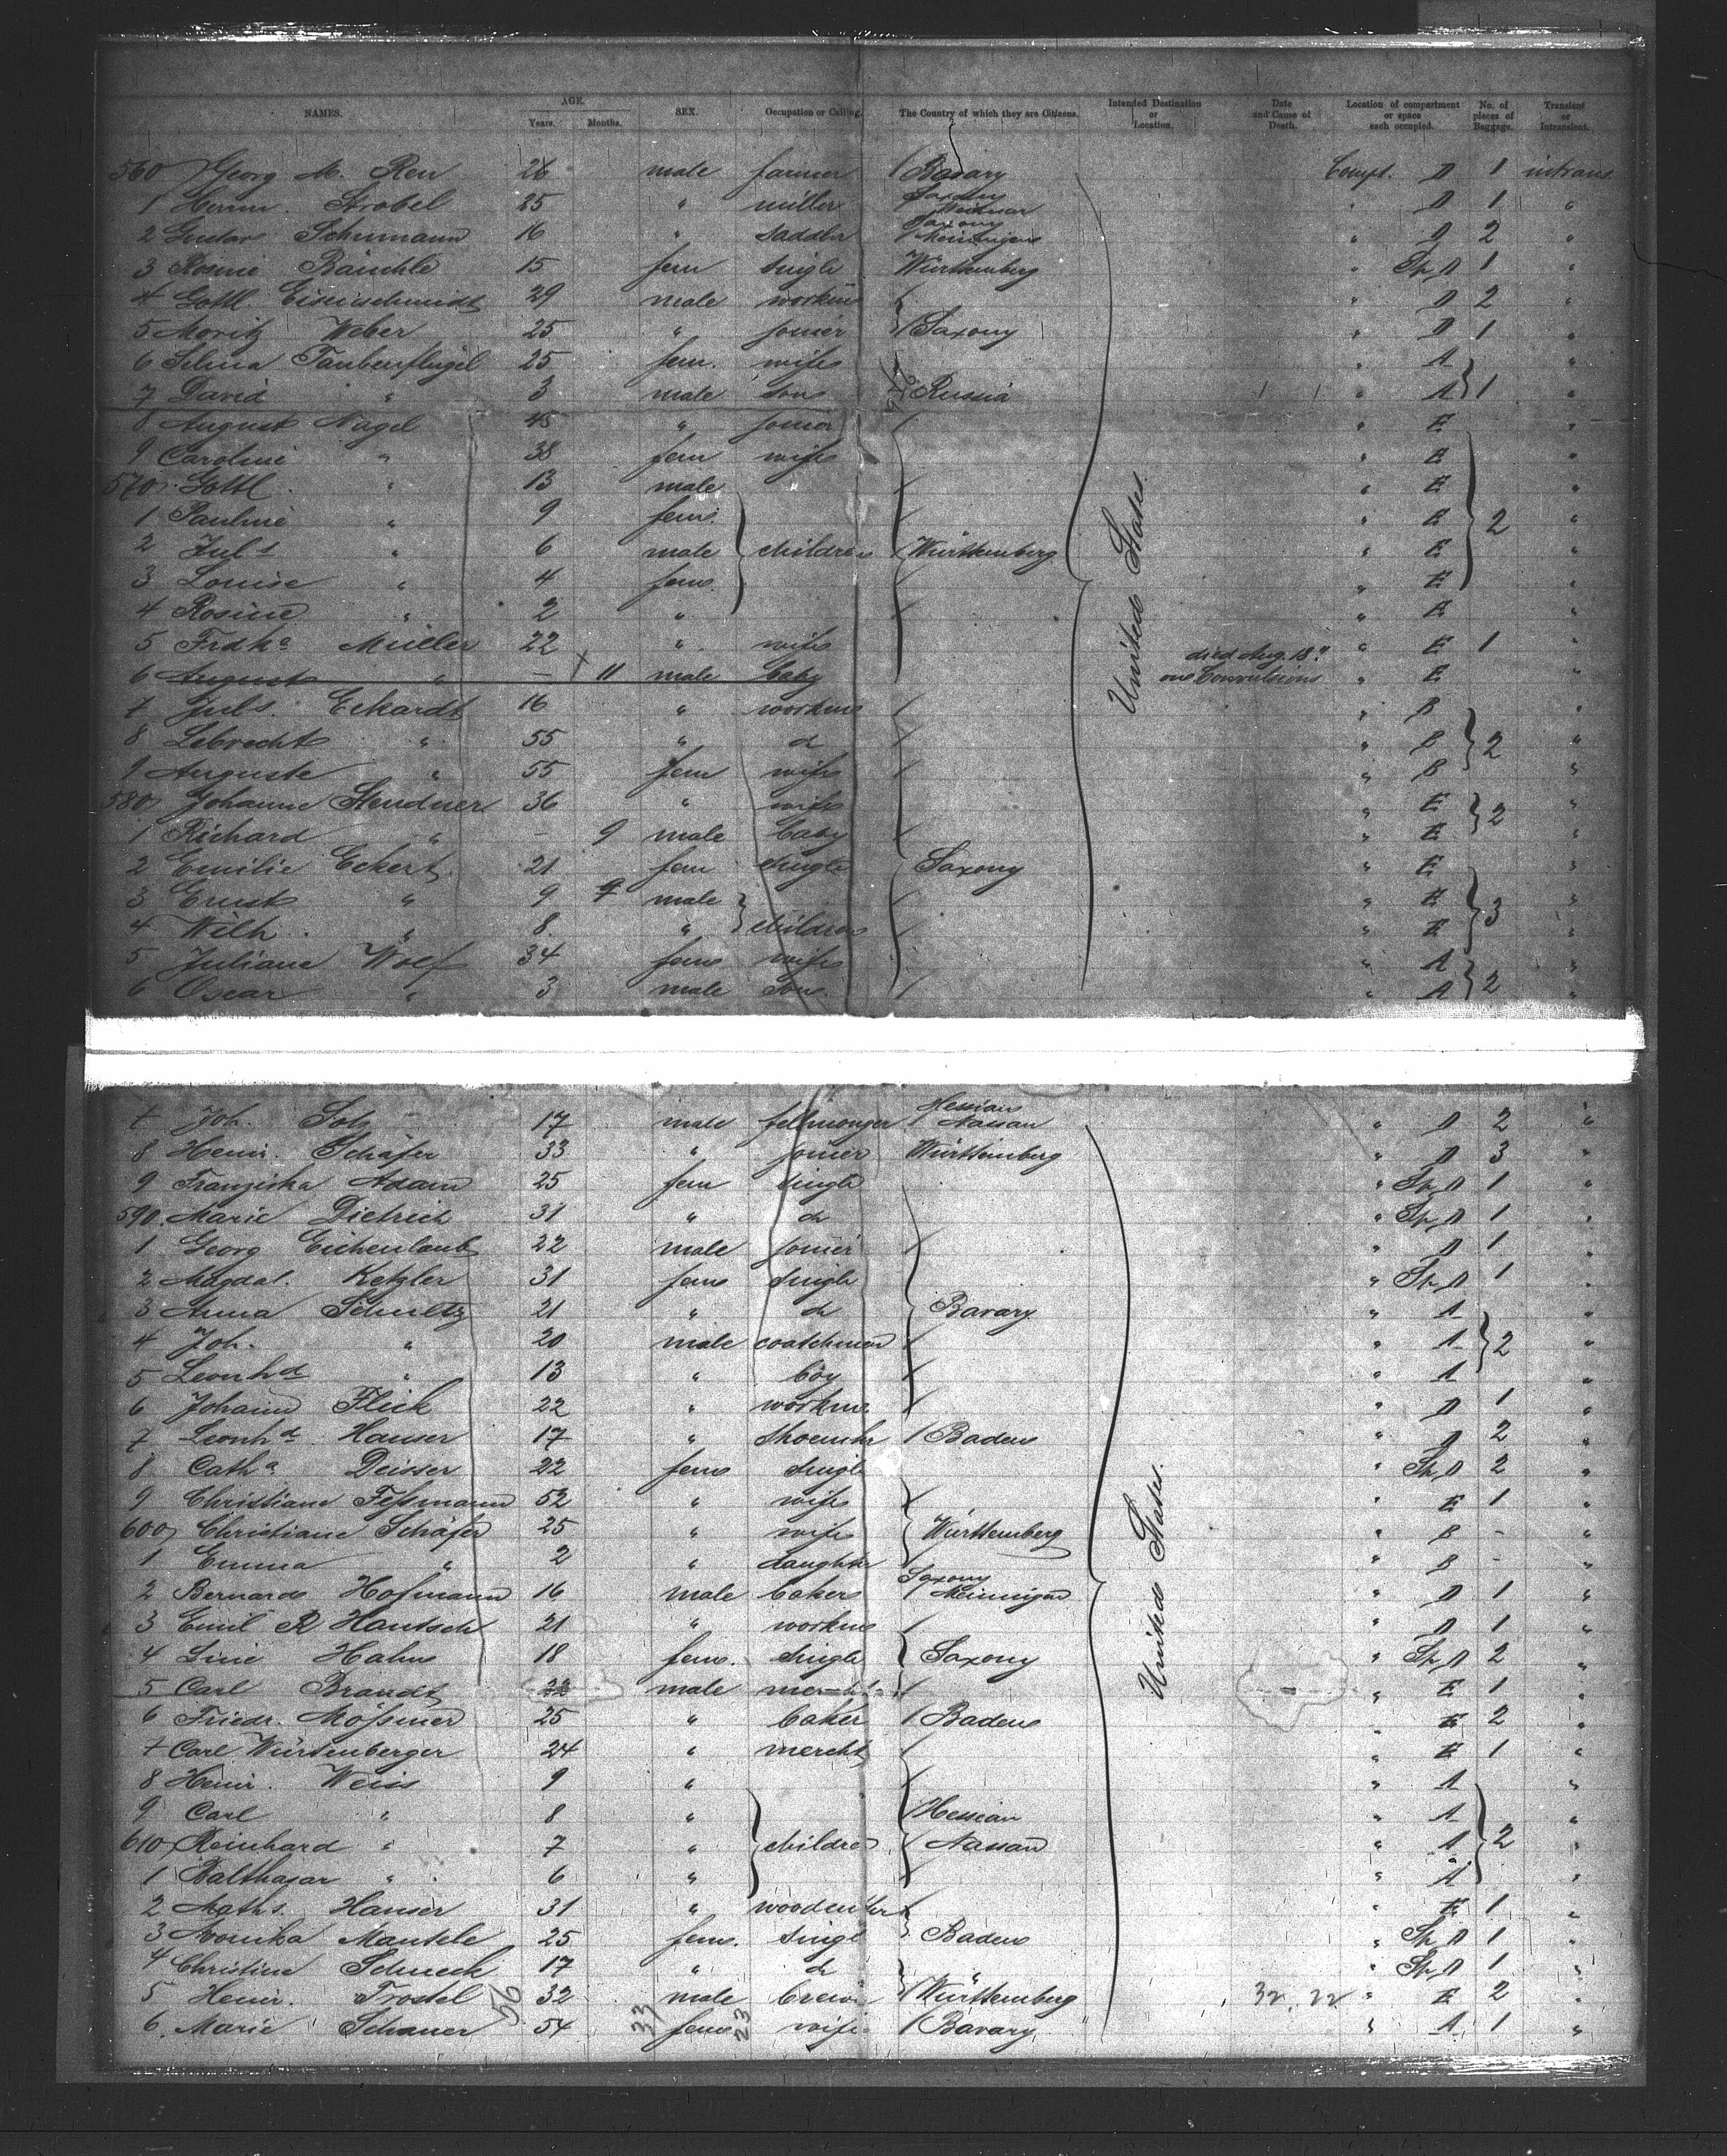 NAMES. AGE. Years. Months. SEX. Occupation or Calling. The Country of which they are Citizens. Intended Destination or Location. Date and Cause of Death. Location of compartment or space each occupied. No. of pieces of Baggage. Transient or Intransient.
560 Georg M. Ren male farmer Bavary Compt. D 1 intrans
1 Herm. Strobel 25 " miller Saxony Weimar " D 1 "
2 Gustav Schumann 16 " saddler Saxony Meiningen " D 2 "
3 Rosine Bäuchle 15 fem single Württemberg " Sp. D 1 "
4 Gottl. Eisenschmidt 29 male workm " D 2 "
5 Moritz Weber 25 " joiner Saxony " D 1 "
6 Selma Taubenflügel 25 fem. wife " A "
7 David " 3 male son Russia " A 1 "
8 August Nagel 45 " joiner " E "
9 Caroline " 38 fem wife " E "
570 Gottl. " 13 male " E "
1 Pauline " 9 fem. " E 2 "
2 Juls " 6 male children Württemberg " E "
3 Louise " 4 fem. " E "
4 Rosine " 2 " " E "
5 Frdka Müller 22 " wife " E 1 "
6 August " — 11 male baby died Aug. 18th on Convulsions " E "
7 Juls. Eckardt 16 " workm " B "
8 Lebrecht " 55 " do " B 2 "
9 Auguste " 55 fem wife " B "
580 Johanne Steudner 36 " wife " E 2 "
1 Richard " — 9 male baby " E "
2 Emilie Eckert 21 fem single Saxony " E "
3 Ernst " 9 male " E 3 "
4 Wilh. " 8 " children " E "
5 Juliane Wolf 34 fem wife " A "
6 Oscar " 3 male son " A 2 "
United States.
7 Joh. 17 male fellmonger Hessian Nassau " D 2 "
8 Heinr. Schäfer 33 " joiner Württemberg " D 3 "
9 Franziska Adam 25 fem single " Sp. D 1 "
590. Marie Dietrich 31 " do " Sp. D 1 "
1 Georg Eichenlaub 22 male joiner " D 1 "
2 Magdal. Ketzler 31 fem single " Sp. D 1 "
3 Anna Schultz 21 " do Bavary " A "
4 Joh. " 20 male coatchman " A 2 "
5 Leonhd " 13 " boy " A "
6 Johann Flick 22 " workm " D 1 "
7 Leonhd Hauser 17 " shoemkr Baden " D 2 "
8 Catha Deisser 22 fem single " Sp. D 2 "
9 Christiane Feßmann 52 " wife " E 1 "
600 Christiane Schäfer 25 " wife Württemberg " B - "
1 Emma " 2 " daughter " B - "
2 Bernard Hofmann 16 male baker Saxony Meiningen " D 1 "
3 Emil R Hantsch 21 " workm " D 1 "
4 Line Hahn 18 fem. single Saxony " Sp. D 2 "
5 Carl Brandt 22 male mercht " E 1 "
6 Friedr. Mößmer 25 " baker Baden " E 2 "
7 Carl Würtenberger 24 " mercht " E 1 "
8 Heinr. Weiss 9 " " A "
9 Carl " 8 " Hessian " A "
610 Reinhard " 7 " children Nassau " A 2 "
1 Balthasar " 6 " " A "
2 Maths. Hauser 31 " woodcutter " E 1 "
3 Monika Mantele 25 fem. single Baden " Sp. D 1 "
4 Christine Schneck 17 " do " " Sp. D 1 "
5 Heinr. Trostel 32 male Württemberg 32. 22 " E 2 "
6. Marie Schauer 54 fem. wife Bavary " A 1 "
United States.
56
33
23